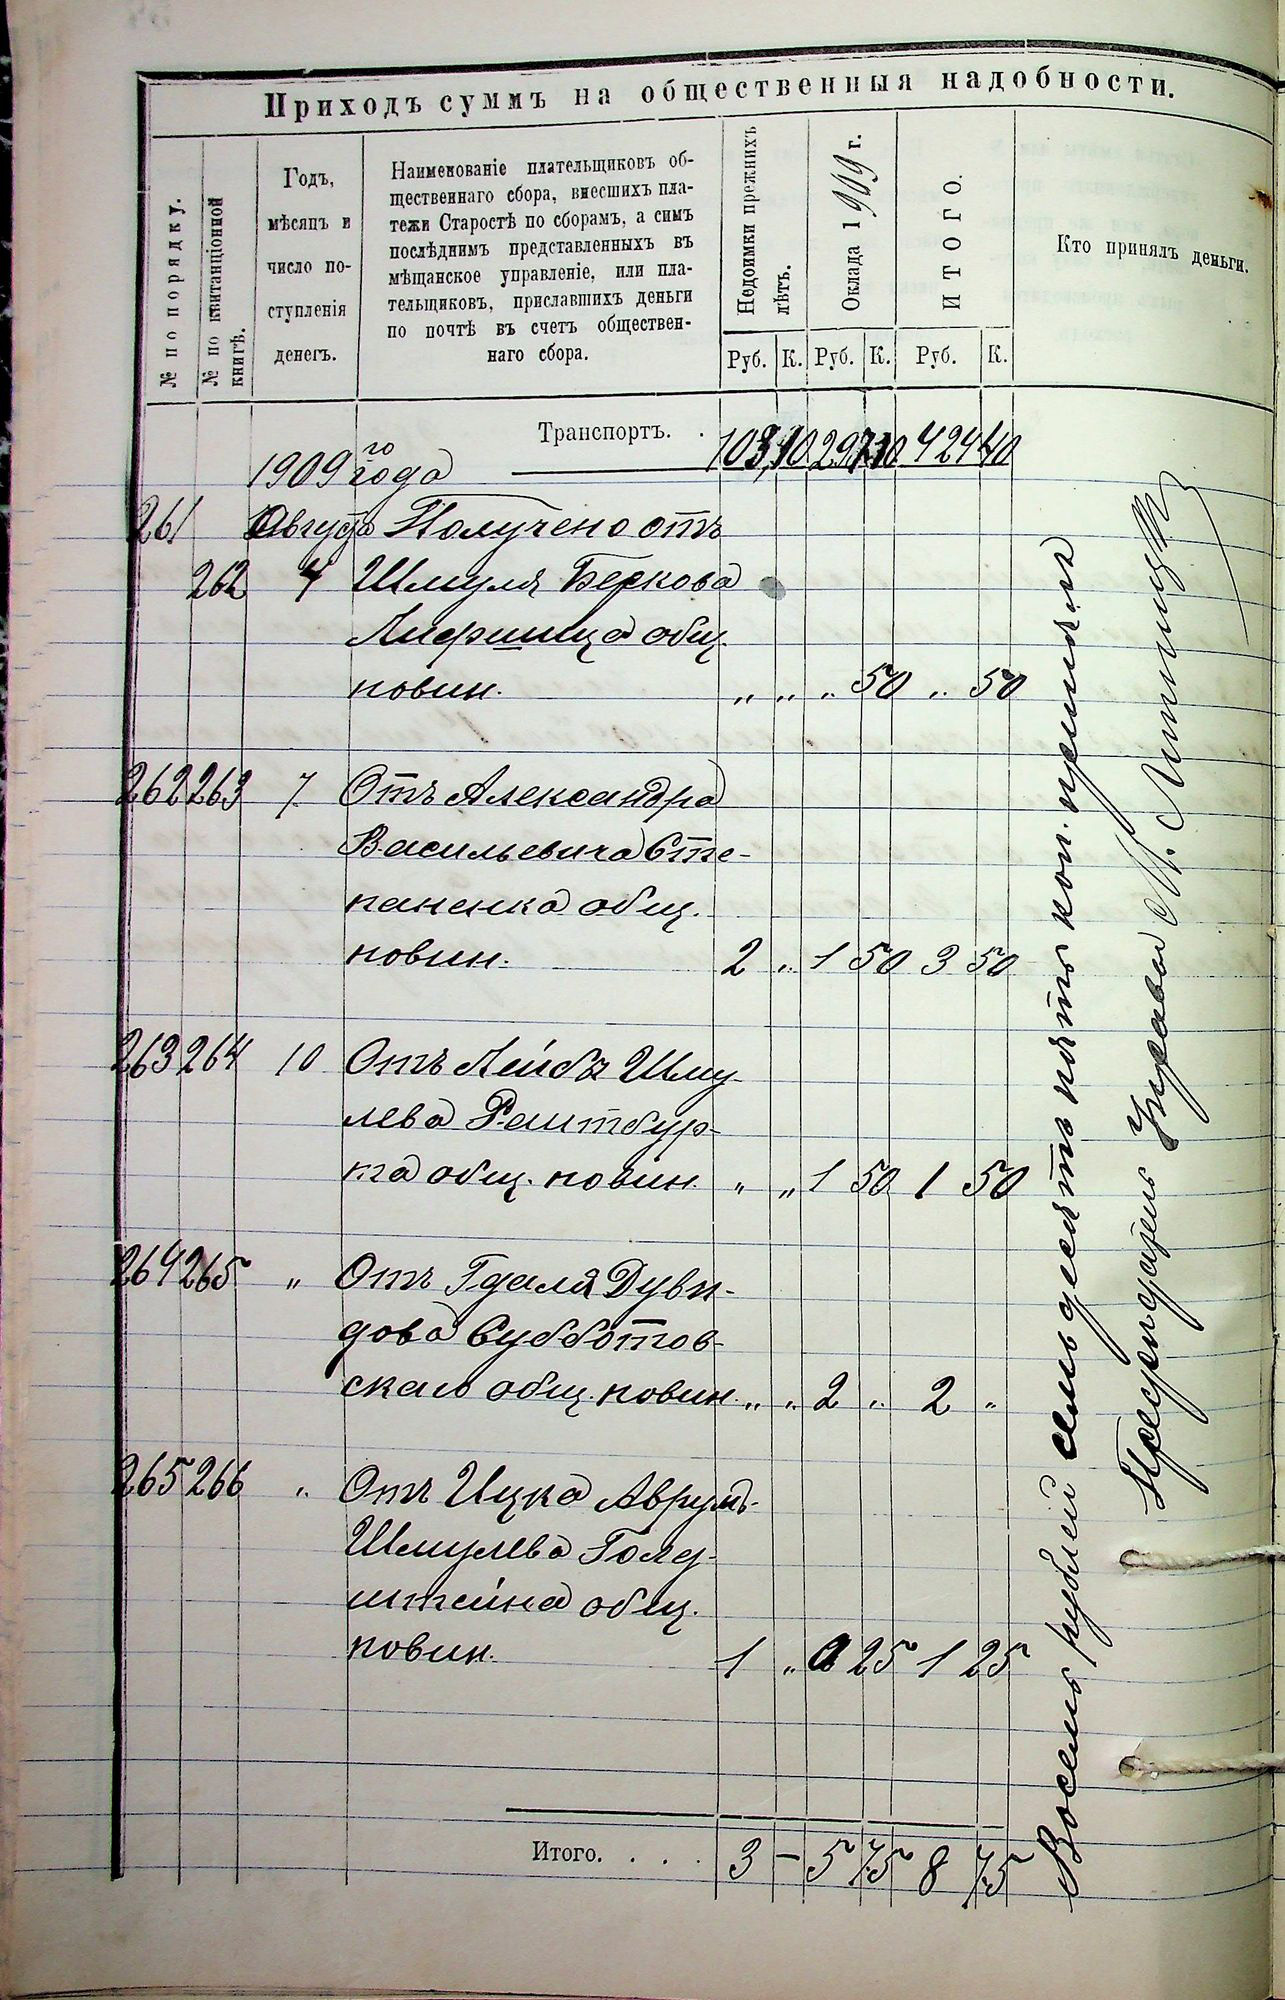 Приходъ суммъ на общественныя надобности.
№ по порядку.
№ по квитанціонной
книгѣ.
Годъ,
мѣсяцъ и
число по-
ступленія
денегъ.
Наименованіе плательщиковъ об-
щественнаго сбора, внесшихъ пла-
тежи Старостѣ по сборамъ, а симъ
послѣднимъ представленныхъ въ
мѣщанское управленіе, или пла-
тельщиковъ, приславшихъ деньги
по почтѣ въ счетъ обществен-
наго сбора.
Недоимки прежнихъ
лѣтъ.
Оклада 1909 г.
ИТОГО.
Кто принялъ деньги.
Руб. К. Руб. К. Руб. К.
Транспортъ. .
1909 го года
261 Августа Получено отъ
262 4 Шмуля Беркова
Лифшица общ.
повин. „ „ „ 50 „ 50
262 263 7 Отъ Александра
Васильевича Сте-
паненка общ.
повин. 2 „ 1 50 3 50
263 264 10 Отъ Лейбы Шму-
лева Раитбур-
га общ. повин. „ „ 1 50 1 50
264 265 „ Отъ Гдаля Дуви-
дова Субботов-
скаго общ. повин. „ „ 2 „ 2 „
265 266 „ Отъ Ицка Аврумъ-
Шмулева Голд-
штейна общ.
повин. 1 „ 25 1 25
Итого. . . . 3 – 5 75 8 75
Восемь рублей семьдесятъ пять коп. принялъ
Предсѣдатель Управы